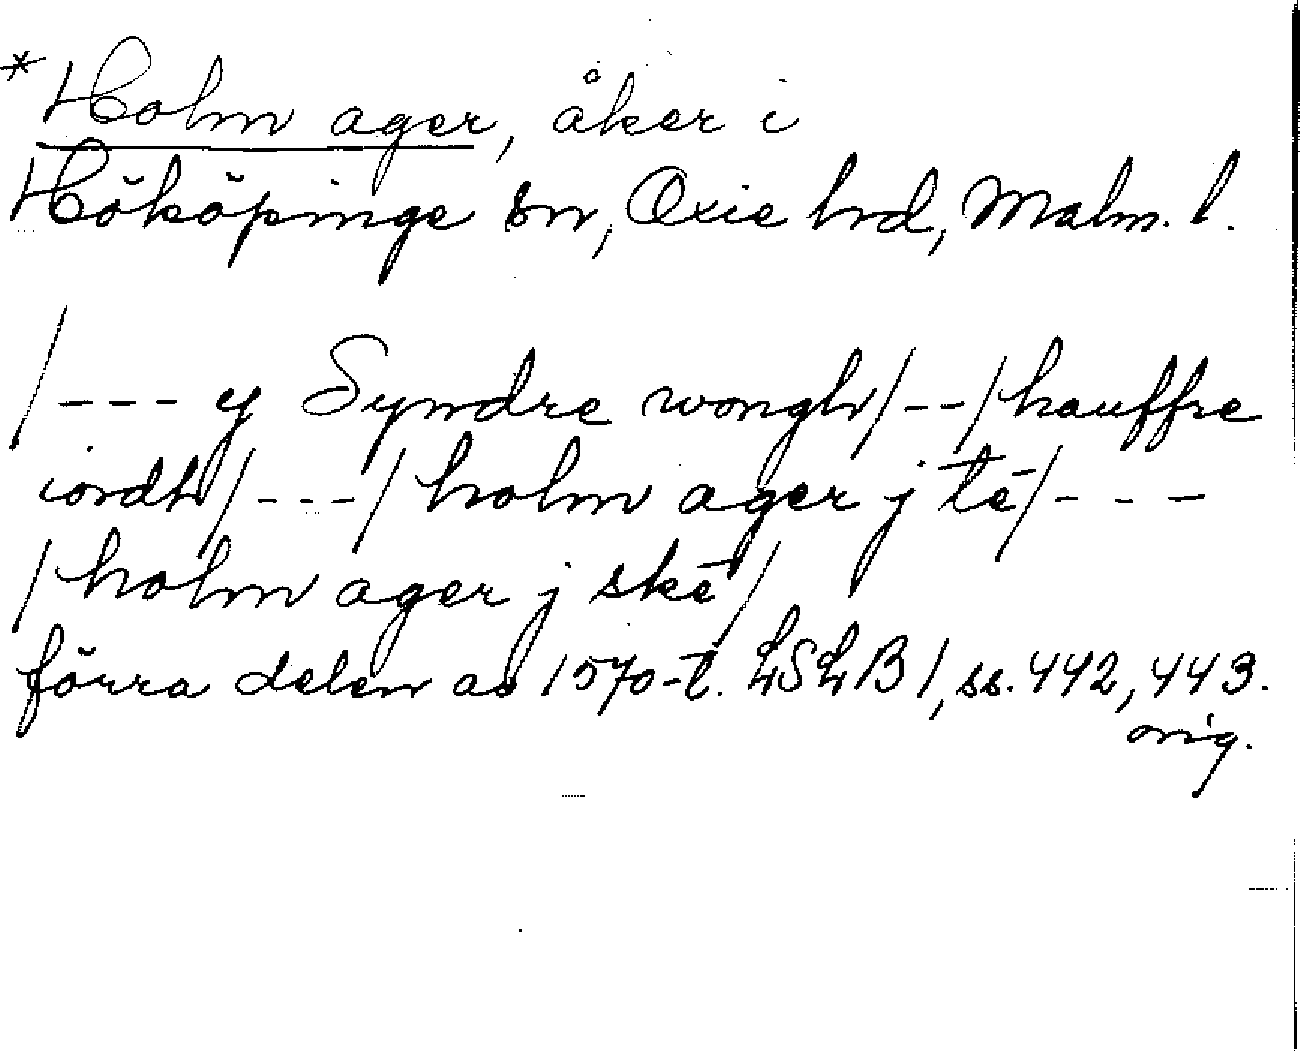 *Holm ager, åker i
Hököpinge sn, Oxie hrd, Malm. l.
/--- y Syndre wongh/--/hauffre
iordh/---/holm ager j tē/---
/holm ager j skē/
förra delen av 1570-t. LSLB1, ss. 442, 443.
orig.